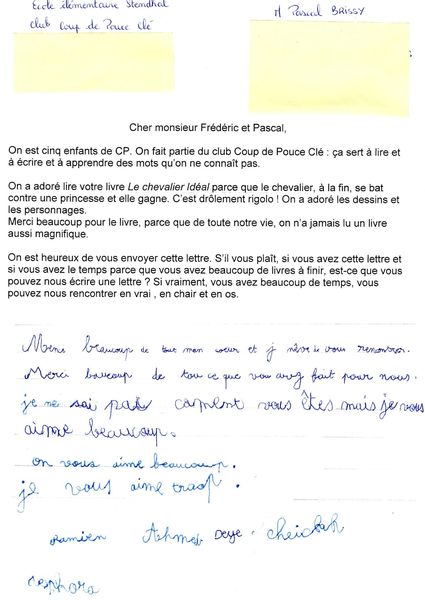 Ecole élémentaire Stendhal
club Coup de Pouce Clé
A Pascal BRISSY
Cher monsieur Frédéric et Pascal,
On est cinq enfants de CP. On fait partie du club Coup de Pouce Clé : ça sert à lire et
à écrire et à apprendre des mots qu'on ne connaît pas.
On a adoré lire votre livre Le chevalier Idéal parce que le chevalier, à la fin, se bat
contre une princesse et elle gagne. C'est drôlement rigolo ! On a adoré les dessins et
les personnages.
Merci beaucoup pour le livre, parce que de toute notre vie, on n'a jamais lu un livre
aussi magnifique.
On est heureux de vous envoyer cette lettre. S'il vous plaît, si vous avez cette lettre et
si vous avez le temps parce que vous avez beaucoup de livres à finir, est-ce que vous
pouvez nous écrire une lettre ? Si vraiment, vous avez beaucoup de temps, vous
pouvez nous rencontrer en vrai , en chair et en os.
beaucoup de tout mon coeur et j vous rencontrer.
Merci baucoup de tou ce que vou avez fait pour nous.
je ne sai pas coment vous êtes mais je vous
aime beaucoup.
on vous aime beaucoup.
je vous aime
Damien Ahmed Deye cheickh